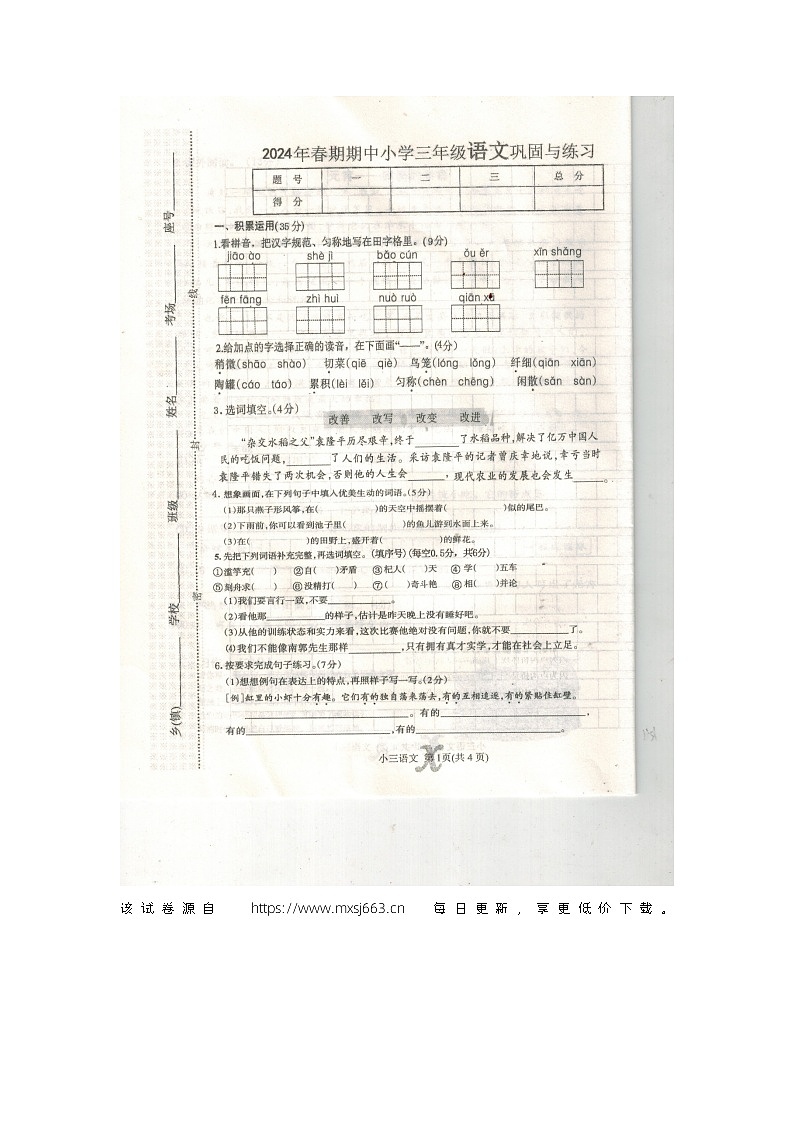 2024年春期期中小学三年级语文巩固与练习
题 号 一 二 三 总 分
得 分
一、积累运用(35分)
1.看拼音，把汉字规范、匀称地写在田字格里。(9分)
jiāo ào shè jì bǎo cún ǒu ěr xīn shǎng
fēn fāng zhì huì nuò ruò qiān xū
2.给加点的字选择正确的读音，在下面画“——”。(4分)
稍微(shāo shào) 切菜(qiē qiè) 鸟笼(lóng lǒng) 纤细(qiān xiān)
陶罐(cáo táo) 累积(lèi lěi) 匀称(chèn chēng) 闲散(sǎn sàn)
3.选词填空。(4分)
改善 改写 改变 改进
“杂交水稻之父”袁隆平历尽艰辛,终于______了水稻品种,解决了亿万中国人
民的吃饭问题,______了人们的生活。采访袁隆平的记者曾庆幸地说,幸亏当时
袁隆平错失了两次机会,否则他的人生会______，现代农业的发展也会发生______。
4.想象画面,在下列句子中填入优美生动的词语。(5分)
(1)那只燕子形风筝,在( )的天空中摇摆着( )似的尾巴。
(2)下雨前,你可以看到池子里( )的鱼儿游到水面上来。
(3)在( )的田野上,盛开着( )的鲜花。
5.先把下列词语补充完整,再选词填空。(填序号)(每空0.5分，共6分)
①滥竽充( ) ②自( )矛盾 ③杞人( )天 ④学( )五车
⑤刻舟求( ) ⑥没精打( ) ⑦( )奇斗艳 ⑧相( )并论
(1)我们要言行一致,不要____________。
(2)看他那__________的样子,估计是昨天晚上没有睡好吧。
(3)从他的训练状态和实力来看,这次比赛他绝对没有问题,你就不要__________了。
(4)我们不能像南郭先生那样__________,只有拥有真才实学,才能在社会上立足。
6.按要求完成句子练习。(7分)
(1)想想例句在表达上的特点,再照样子写一写。(2分)
[例]缸里的小虾十分有趣。它们有的独自荡来荡去,有的互相追逐,有的紧贴住缸壁。
______________________________。有的__________________________,
有的__________________________,有的__________________________。
小三语文 第1页(共4页)
乡(镇)________ 学校________ 班级________ 姓名________ 考场________ 座号________
密 封 线
该试卷源自 https://www.mxsj663.cn 每日更新，享更低价下载。